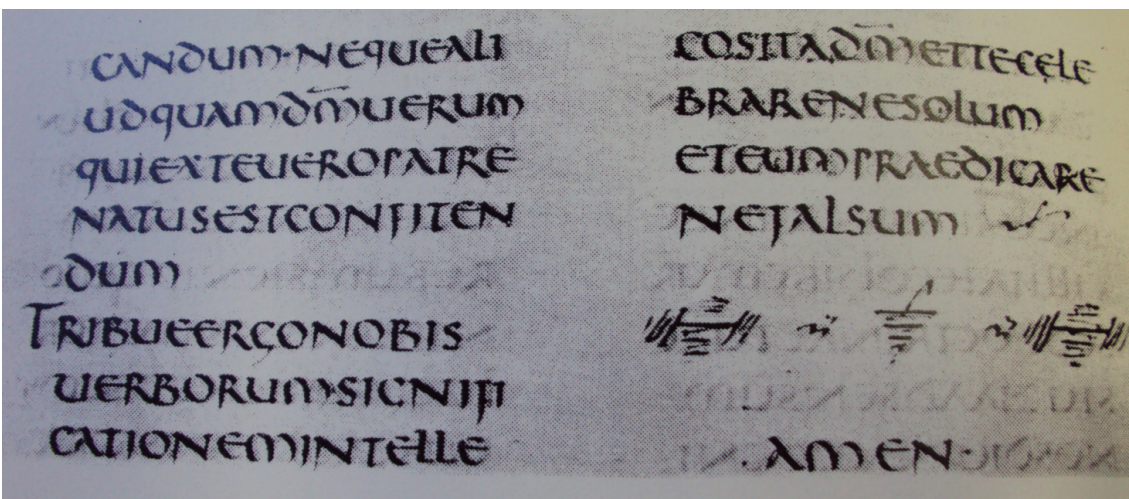 CANDUM·NEQUEALI
UDQUAMD̄M̄UERUM
QUIEXTEUEROPATRE
NATUSESTCONFITEN
DUM
TRIBUEERGONOBIS
UERBORUMSIGNIFI
CATIONEMINTELLE
COSITAD̄M̄ETTECELE
BRARENESOLUM
ETEUMPRAEDICARE
NEFALSUM
·AMEN·